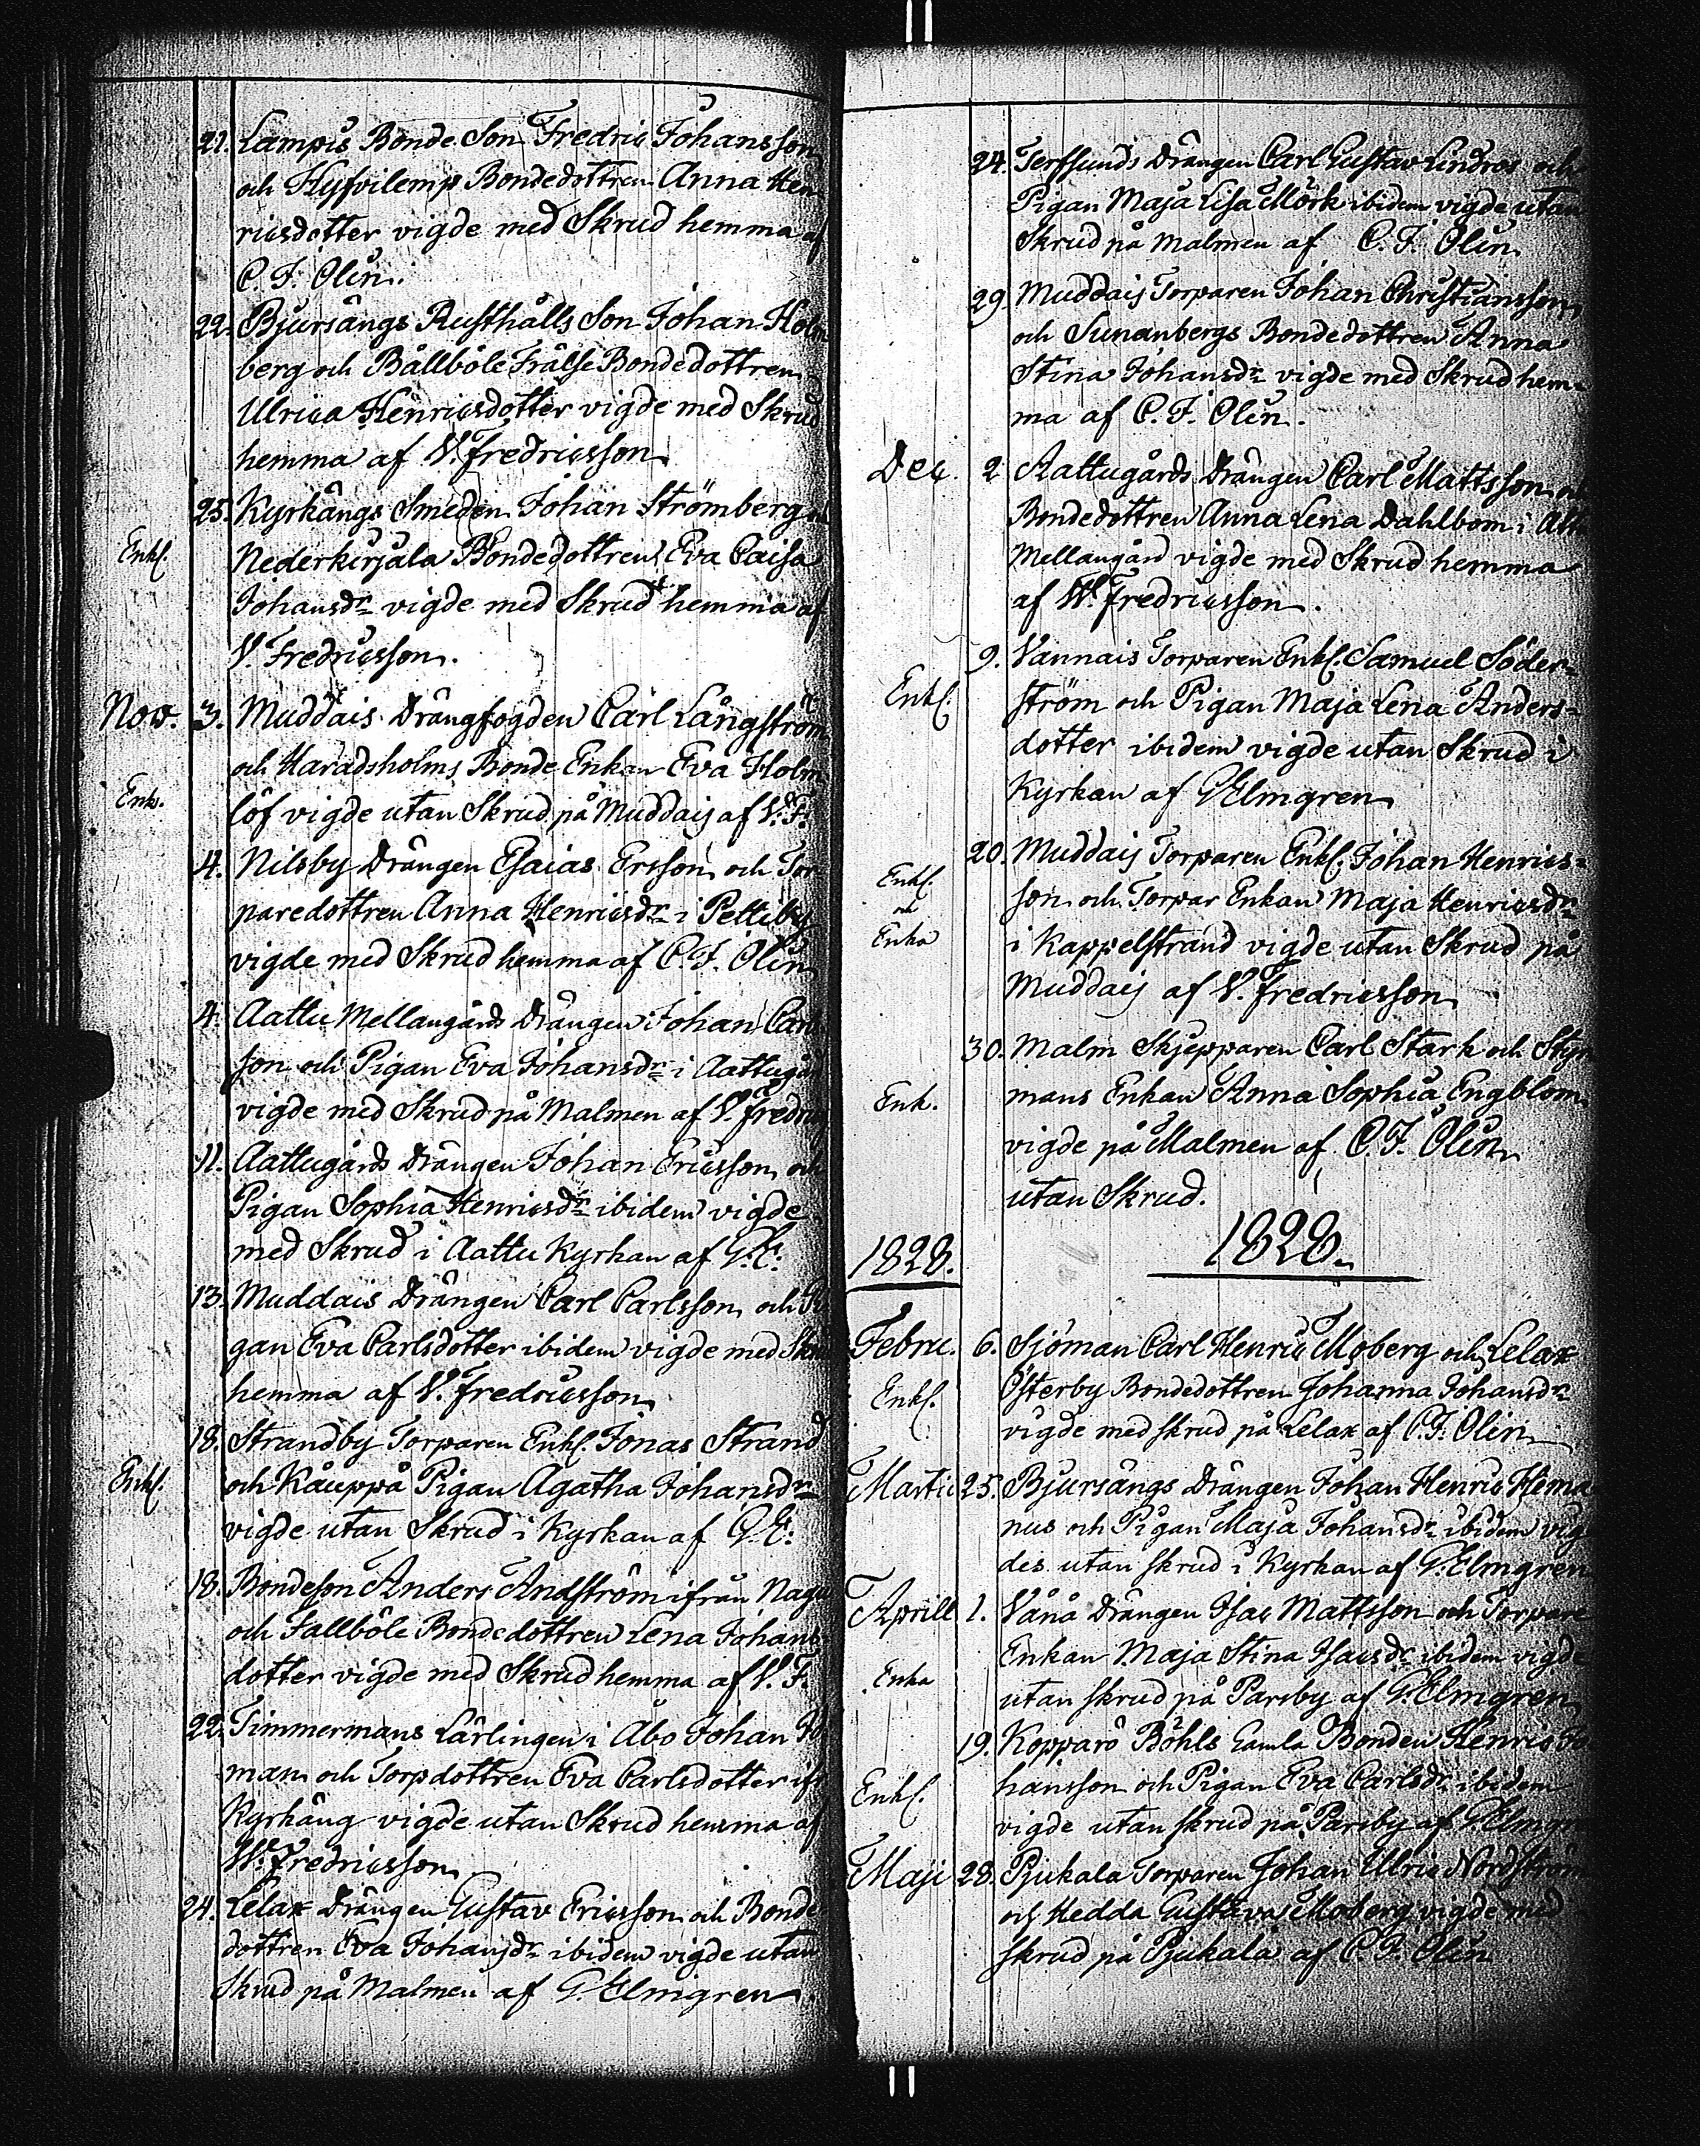 21. Lampis Bonde Son Fredric Johansson
och Hyfvilemp Bondedottren Anna Hen
ricsdotter vigde med Skrud hemma af
C. F. Olin.
22. Bjursängs Rusthålls Son Johan Holm
berg och Bållböle Frälse Bondedottren
Ulrica Henricsdotter vigde med Skrud
hemma af V. Fredricsson
25. Kyrkängs Smeden Johan Strömberg
Enkl. Nederkirjala Bondedottren Eva Caisa
Johansdr vigde med Skrud hemma af
V. Fredricsson.
Nov. 3. Muddais Drängfogden Carl Långström
och Haradsholms Bonde Enkan Eva Holm
Enk. löf vigde utan Skrud på Muddais af V. F.
4. Nilsby Drängen Esaias Ersson och Tor
paredottren Anna Henricsdr i Pettiby
vigde med Skrud hemma af C. F. Olin
4. Aattu Mellangårds Drängen Johan Carls
son och Pigan Eva Johansdr i Aattugård
vigde med Skrud på Malmen af V. Fredric
11. Aattugårds Drängen Johan Ericsson och
Pigan Sophia Henricsdr ibidem vigde
med Skrud i Aattu Kyrkan af G. E.
13. Muddais Drängen Carl Carlsson och Pi
gan Eva Carlsdotter ibidem vigde med Skrud
hemma af V. Fredricsson
18. Strandby Torparen Enkl. Jonas Strand
Enkl. och Kåuppå Pigan Agatha Johansdr
vigde utan Skrud i Kyrkan af G. E.
18. Bondeson Anders Andström ifrån Nagu
och Fallböle Bondedottren Lena Johans
dotter vigde med Skrud hemma af V. F.
22. Timmermans Lärlingen i Åbo Johan
man och Torpdottren Eva Carlsdotter ifr
Kyrkäng vigde utan Skrud hemma af
W. Fredricsson
24. Lelax Drängen Gustav Ericsson och Bonde
dottren Eva Johansdr ibidem vigde utan
Skrud på Malmen af G. Elmgren.
24. Terfsunds Drängen Carl Gustav Lindros och
Pigan Maja Lisa Mörk ibidem vigde utan
Skrud på Malmen af C. F. Olin
29. Muddais Torparen Johan Christiansson
och Sunanbergs Bondedottren Anna
Stina Johansdr vigde med Skrud hem=
ma af C. F. Olin.
Dec. 2 Aattugårds Drängen Carl Mattsson och
Bondedottren Anna Lena Dahlbom i Attu
Mellangård vigde med Skrud hemma
af W. Fredricsson.
9. Vannais Torparen Enkl. Samuel Söder=
Enkl. ström och Pigan Maja Lena Anders=
dotter ibidem vigde utan Skrud i
Kyrkan af G Elmgren
20. Muddais Torparen Enkl. Johan Henrics=
Enkl. och Enka son och Torpar Enkan Maja Henricsdr
i Kappelstrand vigde utan Skrud på
Muddais af V. Fredricsson
30. Malm Skjepparen Carl Stark och Styr
Enk. mans Enkan Anna Sophia Engblom
vigde på Malmen af C. F. Olin
utan Skrud.
1828. 1828.
Febru. 6. Sjöman Carl Henric Moberg och Lelax
Enkl. Österby Bondedottren Johanna Johansdr
vigde med skrud på Lelax af C. F. Olin
Martii 25. Bjursängs Drängen Johan Henric Hema
nus och Pigan Maja Johansdr ibidem vig
des utan skrud i Kyrkan af G. Elmgren
Aprill 1. Vånå Drängen Isac Mattsson och Torpare
Enkan Maja Stina Isacsdr ibidem vigde
Enka utan skrud på Parsby af G. Elmgren
19. Kopparö Böhls Gamla Bonden Henric Jo
Enkl. hansson och Pigan Eva Carlsdr ibidem
vigde utan skrud på Parsby af G Elmgr
Maji 28. Pjukala Torparen Johan Ulric Nordström
och Hedda Gustava Moberg vigde med
skrud på Pjukala af C. F. Olin